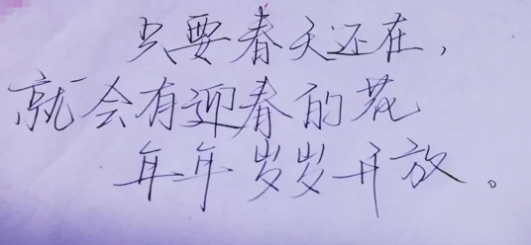 只要春天还在，
就会有迎春的花
年年岁岁开放。